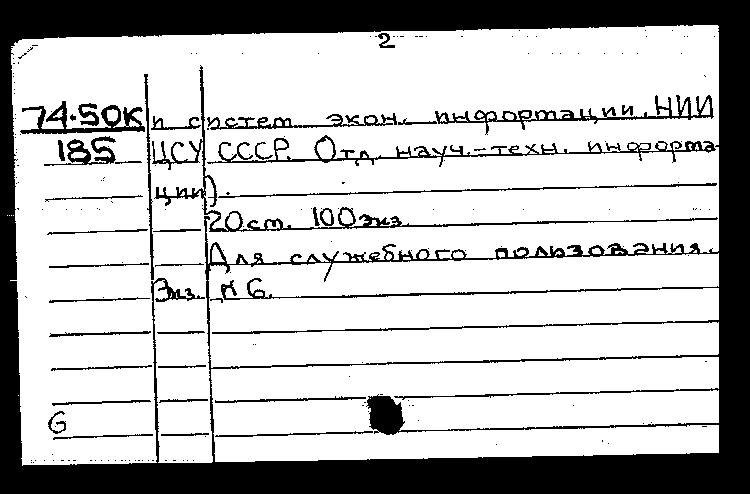 2
74.50К и систем экон. информации. НИИ
185 ЦСУ СССР. Отд. науч.-техн. информа-
ции).
20см. 100экз.
Для служебного пользования.
Экз. N 6.
6